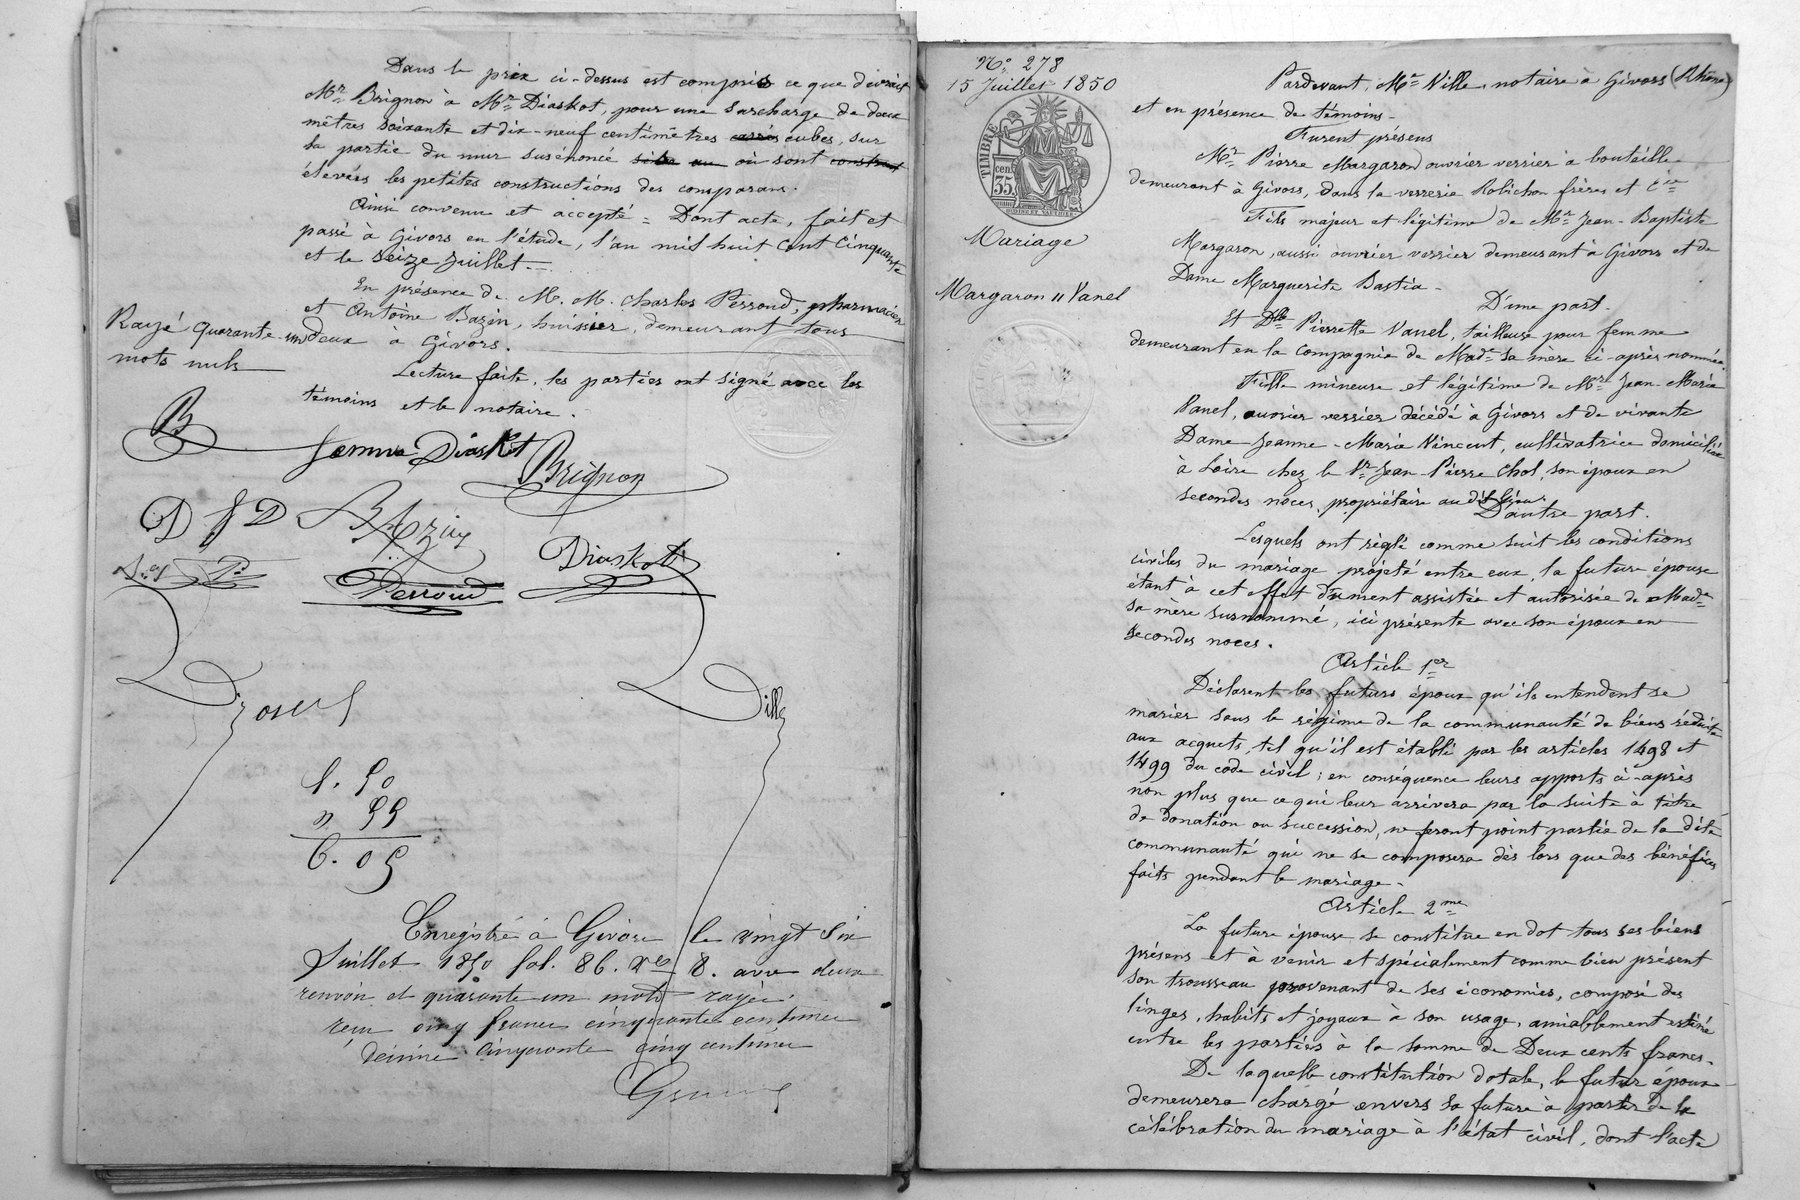 Dans le prix ci-dessus est compris ce que devrait
Mr. Brignon à Mr. Diaskot, pour une surcharge de deux
mètres soixante et dix-neuf centimètres carrés cubes, sur
la partie du mur susénoncé où sont
élevées les petites constructions des comparans.
Ainsi convenu et accepté = Dont acte, fait et
passé à Givors en l'étude, l'an mil huit cent cinquante
et le seize Juillet.
En présence de M. M. Charles Perroud, pharmacien
et Antoine Bazin, huissier, demeurant tous
deux à Givors.
Lecture faite, les parties ont signé avec les
témoins et le notaire.
Rayé quarante-un
mots nuls
B
femme Diaskot
Brignon
D f D
BAzin
Diaskot
Perroud
Ville
5. 50
n 55
6. 05
Enregistré à Givors le vingt six
Juillet 1850 fol. 86. Ro 8. avec deux
renvois et quarante un mots rayés.
reçu cinq francs cinquante centimes
Décime cinquante cinq centimes
No. 278
15 Juillet 1850
TIMBRE
35 cen
Mariage
Margaron // Vanel
Pardevant, Me Ville, notaire à Givors (Rhône)
et en présence de témoins.
Furent présens
Mr. Pierre Margaron ouvrier verrier à bouteille
demeurant à Givors, dans la verrerie Robichon frères et Cie
Fils majeur et légitime de Mr. Jean-Baptiste
Margaron, aussi ouvrier verrier demeurant à Givors et de
Dame Marguerite Bastia.
D'une part.
Et Dlle Pierrette Vanel, tailleuse pour femme
demeurant en la compagnie de Made sa mère ci-après nommée.
Fille mineure et légitime de Mr. Jean-Marie
Vanel, ouvrier verrier décédé à Givors et de vivante
Dame Jeanne-Marie Vincent, cultivatrice domiciliée
à Loire chez le Sr. Jean-Pierre Chol, son époux en
secondes noces, propriétaire au dit lieu.
D'autre part.
Lesquels ont réglé comme suit les conditions
civiles du mariage projeté entre eux, la future épouse
étant à cet effet dûment assistée et autorisée de Made
sa mère surnommé, ici présente avec son époux en
secondes noces.
Article 1er
Déclarent les futurs époux qu'ils entendent se
marier sous le régime de la communauté de biens réduite
aux acquets, tel qu'il est établi par les articles 1498 et
1499 du code civil; en conséquence leurs apports ci-après
non plus que ce qui leur arrivera par la suite à titre
de donation ou succession, ne feront point partie de la dite
communauté qui ne se composera dès lors que des bénéfices
faits pendant le mariage.
Article 2me
La future épouse se constitue en dot tous ses biens
présens et à venir et spécialement comme bien présent
son trousseau provenant de ses économies, composé des
linges, habits et joyaux à son usage, amiablement estimé
entre les parties à la somme de Deux cents francs.
De laquelle constitution dotale, le futur époux
demeurera chargé envers sa future à partir de la
célébration du mariage à l'état civil, dont l'acte